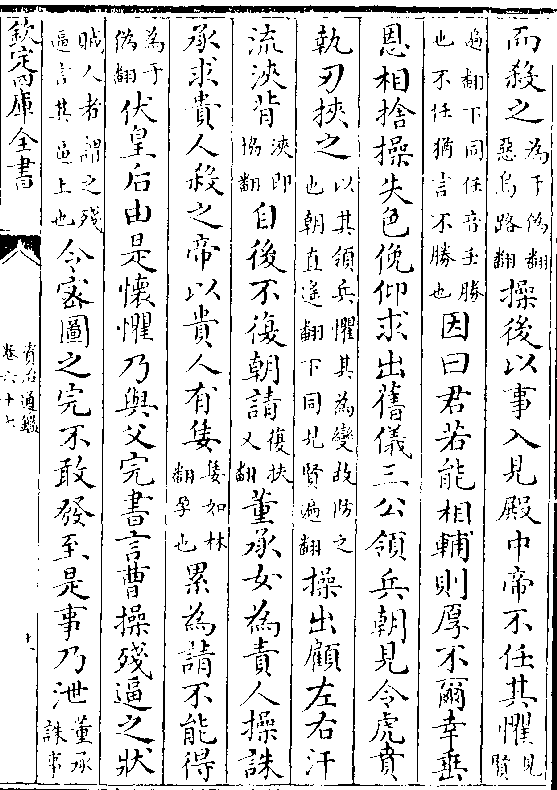 而殺之為于偽翻惡烏路翻操後以事入見殿中帝不任其懼見賢
遍翻下同任音壬勝也不任猶言不勝也因曰君若能相輔則厚不爾幸垂
恩相捨操失色俛仰求出舊儀三公領兵朝見令虎賁
執刃挾之以其領兵懼其為變故防之也朝直遥翻下同見賢遍翻操出顧左右汗
流浹背浹即協翻自後不復朝請復扶又翻董承女為貴人操誅
承求貴人殺之帝以貴人有㑗㑗如林翻孕也累為請不能得
為于偽翻伏皇后由是懷懼乃與父完書言曹操殘逼之狀
賊人者謂之殘逼言其逼上也令宻圖之完不敢發至是事乃泄董承誅事
欽定四庫全書
資治通鑑
卷六十七
十八